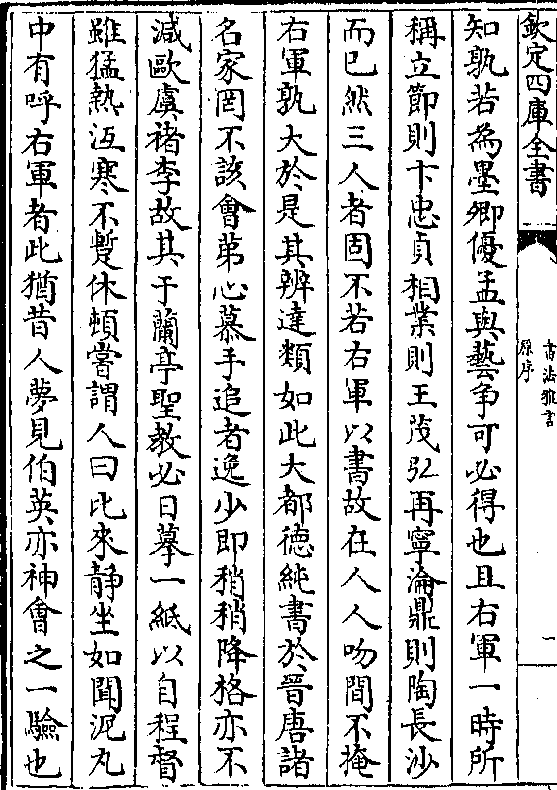 欽定四庫全書
書法雅言
原序
一
知孰若為墨卿優孟與藝爭可必得也且右軍一時所
稱立節則卞忠貞相業則王茂弘再寧瀹鼎則陶長沙
而已然三人者固不若右軍以書故在人人吻間不掩
右軍孰大於是其辨達類如此大都德純書於晉唐諸
名家罔不該會第心慕手追者逸少即稍稍降格亦不
減歐虞褚李故其于蘭亭聖教必日摹一紙以自程督
雖猛熱沍寒不蹔休頓嘗謂人曰比來靜坐如聞泥丸
中有呼右軍者此猶昔人夢見伯英亦神會之一驗也